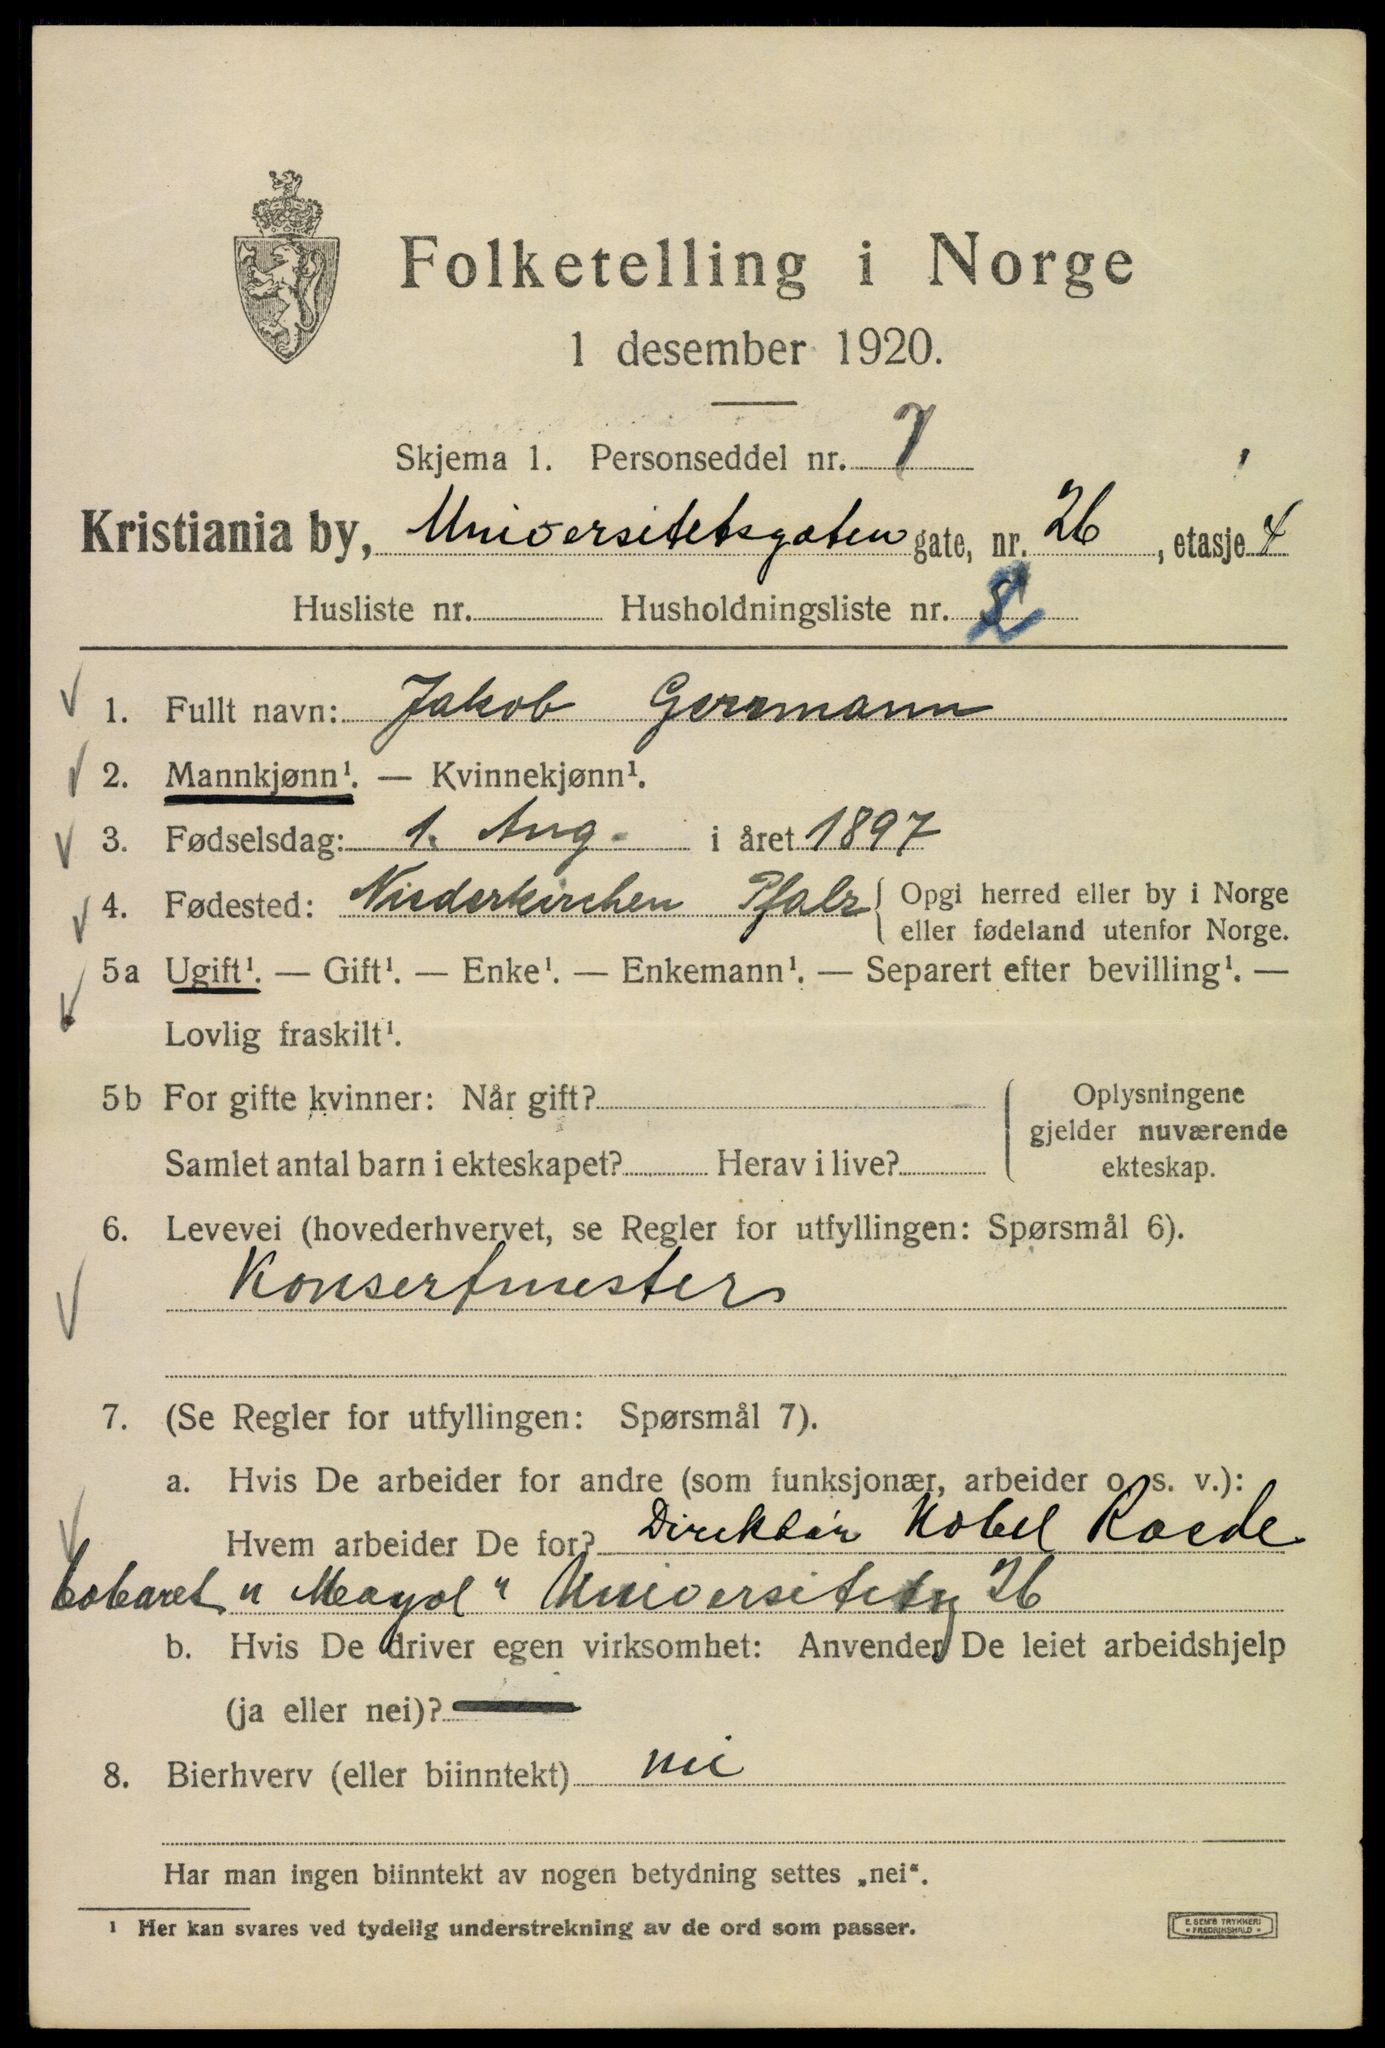 Folketelling i Norge
1 desember 1920.
Skjema 1. Personseddel nr. 7
Kristiania by, Universitetsgaten gate, nr. 26, etasje 4
Husliste nr. Husholdningsliste nr. 2
1. Fullt navn: Jakob Germann
2. Mannkjønn¹. — Kvinnekjønn¹.
3. Fødselsdag: 1. Aug. i året 1897
4. Fødested: Niederkirchen Pfalz { Opgi herred eller by i Norge
eller fødeland utenfor Norge.
5a Ugift¹. — Gift¹. — Enke¹. — Enkemann¹. — Separert efter bevilling¹. —
Lovlig fraskilt¹.
5b For gifte kvinner: Når gift?
Samlet antal barn i ekteskapet? Herav i live?
Oplysningene
gjelder nuværende
ekteskap.
6. Levevei (hovederhvervet, se Regler for utfyllingen: Spørsmål 6).
Konsertmester
7. (Se Regler for utfyllingen: Spørsmål 7).
a. Hvis De arbeider for andre (som funksjonær, arbeider o. s. v.):
Hvem arbeider De for? Direktør Nobel Roede
Cabaret "Mayol" Universitetsg 26
b. Hvis De driver egen virksomhet: Anvender De leiet arbeidshjelp
(ja eller nei)?
8. Bierhverv (eller biinntekt) nei
Har man ingen biinntekt av nogen betydning settes „nei“.
¹ Her kan svares ved tydelig understrekning av de ord som passer.
E. SEM'S TRYKKERI
FREDRIKSHALD